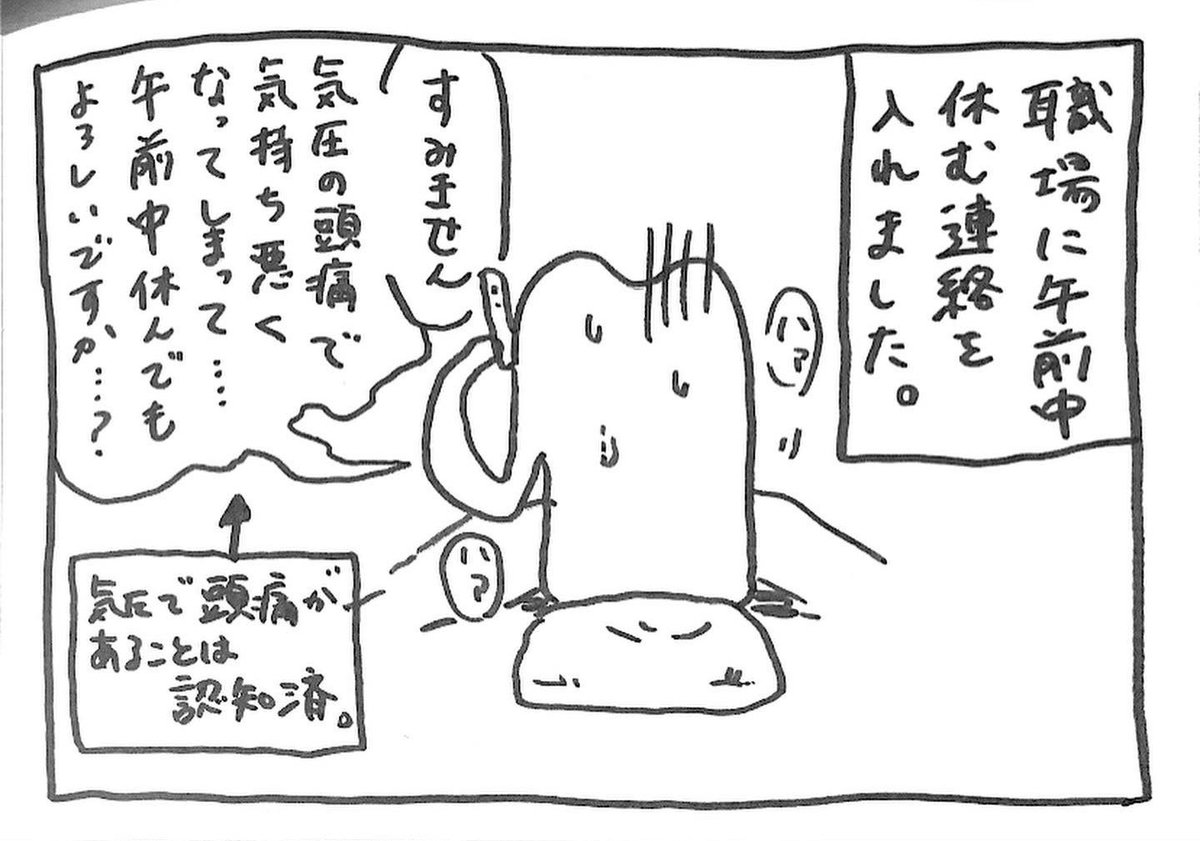 職場に午前中
休む連絡を
入れました。
すみません
気圧の頭痛で
気持ち悪く
なってしまって……
午前中休んでも
よろしいですか……?
ハァ
ハァ
気圧で頭痛が
あることは
認知済。